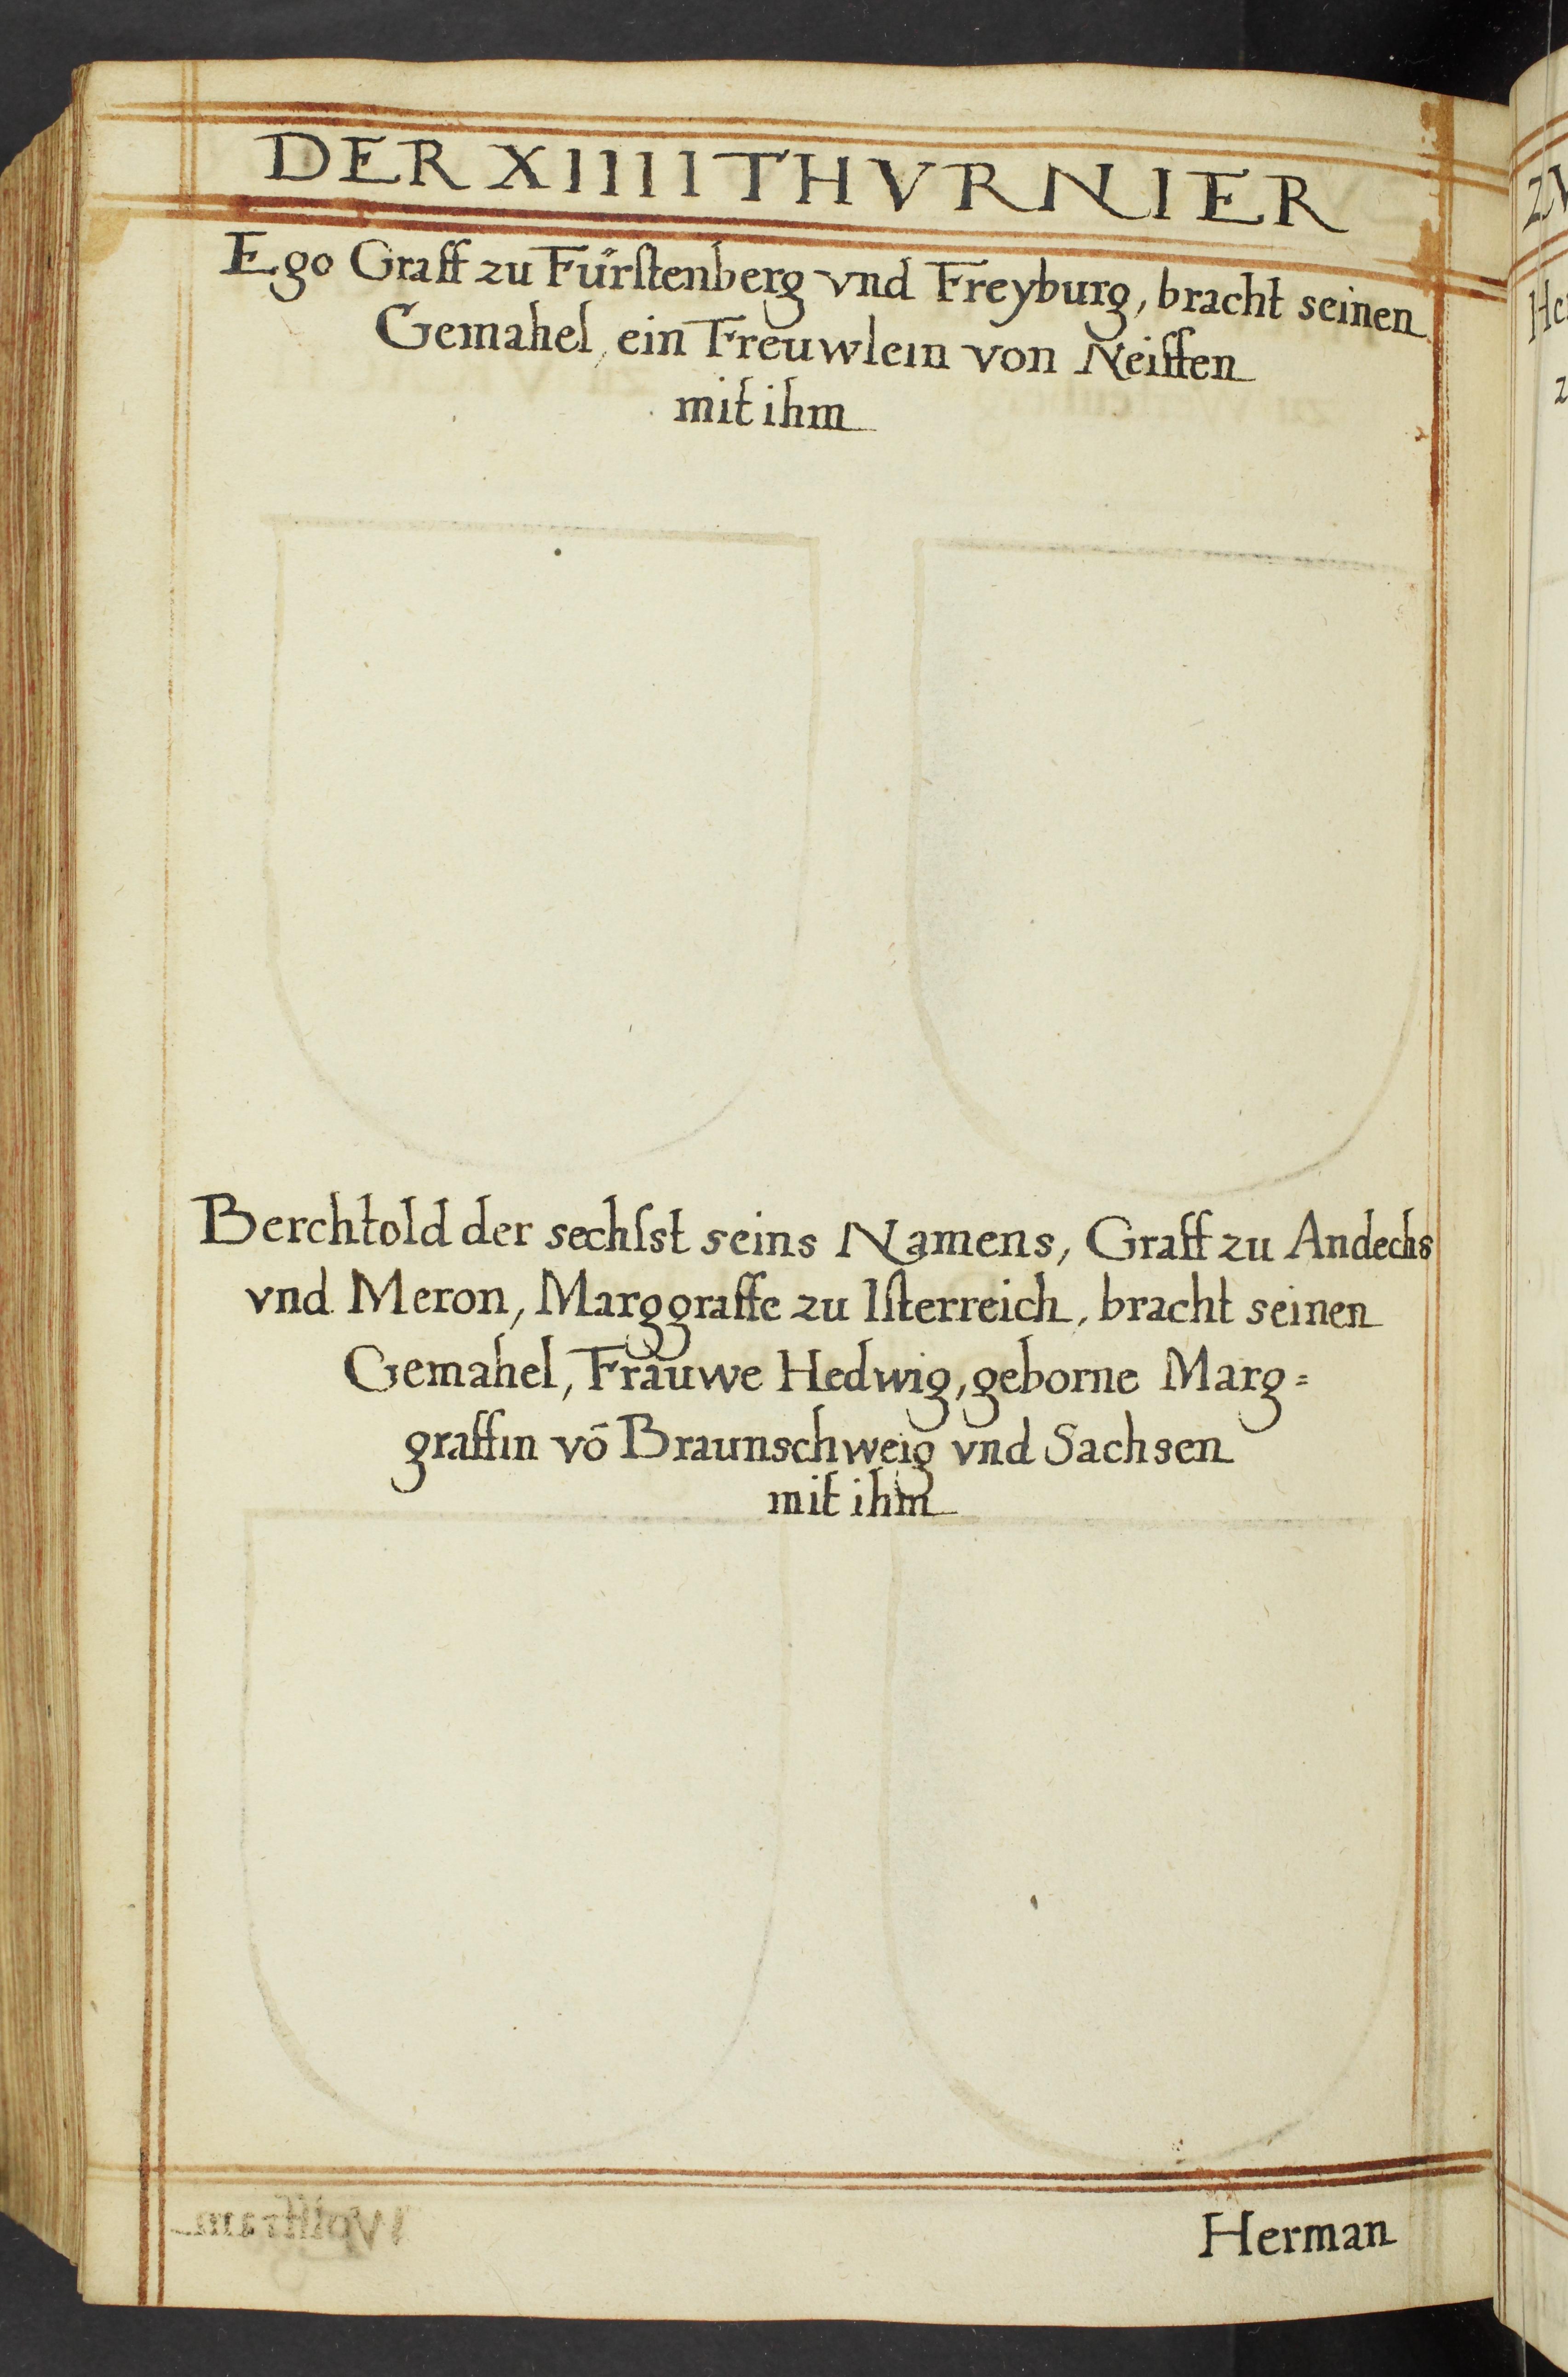 DER XIIII THVRNIER
Ego Graff zu Fürstenberg vnd Freyburg, bracht seinen
Gemahel, ein Freuwlein von Neiffen
mit ihm
Berchtold der sechſst seins Namens, Graff zu Andechs
vnd Meron, Marggraffe zu Iſterreich, bracht seinen
Gemahel, Frauwe Hedwig, geborne Marg=
graffin vō Braunschweig vnd Sachsen
mit ihm
Herman